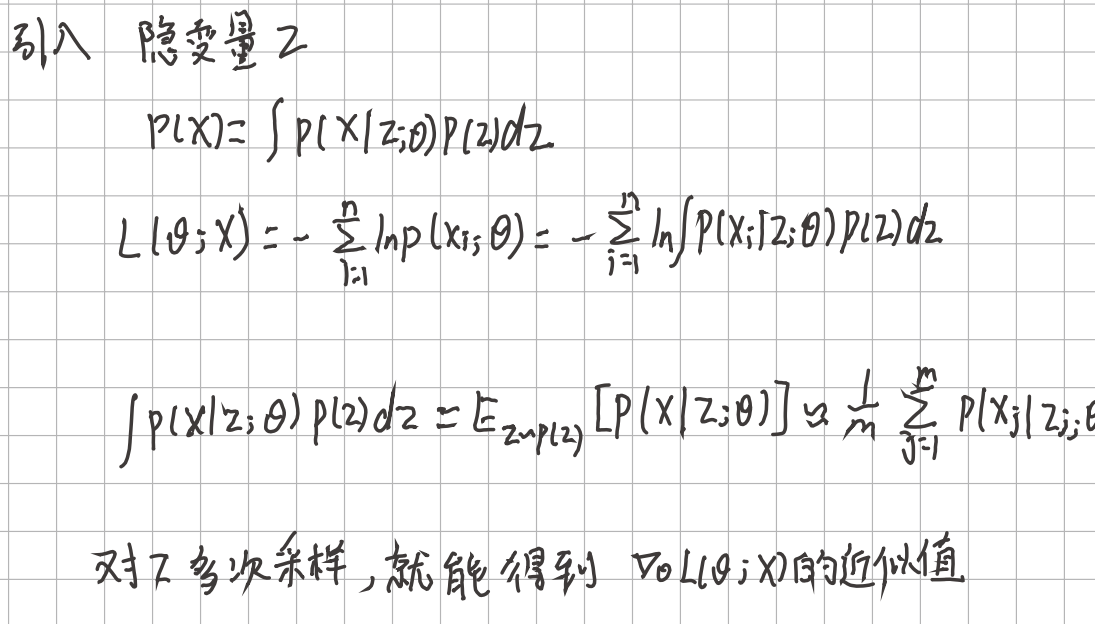 引入 隐变量 z
P(X)=∫p(X|z;θ)P(z)dz
L(θ;X)=-∑_{i=1}^{n} ln p(x_i;θ)=-∑_{i=1}^{n} ln∫P(x_i|z;θ)p(z)dz
∫p(x|z;θ)p(z)dz=E_{z~p(z)}[P(X|z;θ)]≈1/m ∑_{j=1}^{m} P(x_j|z_j;θ
对z多次采样,就能得到 ∇_θL(θ;X)的近似值